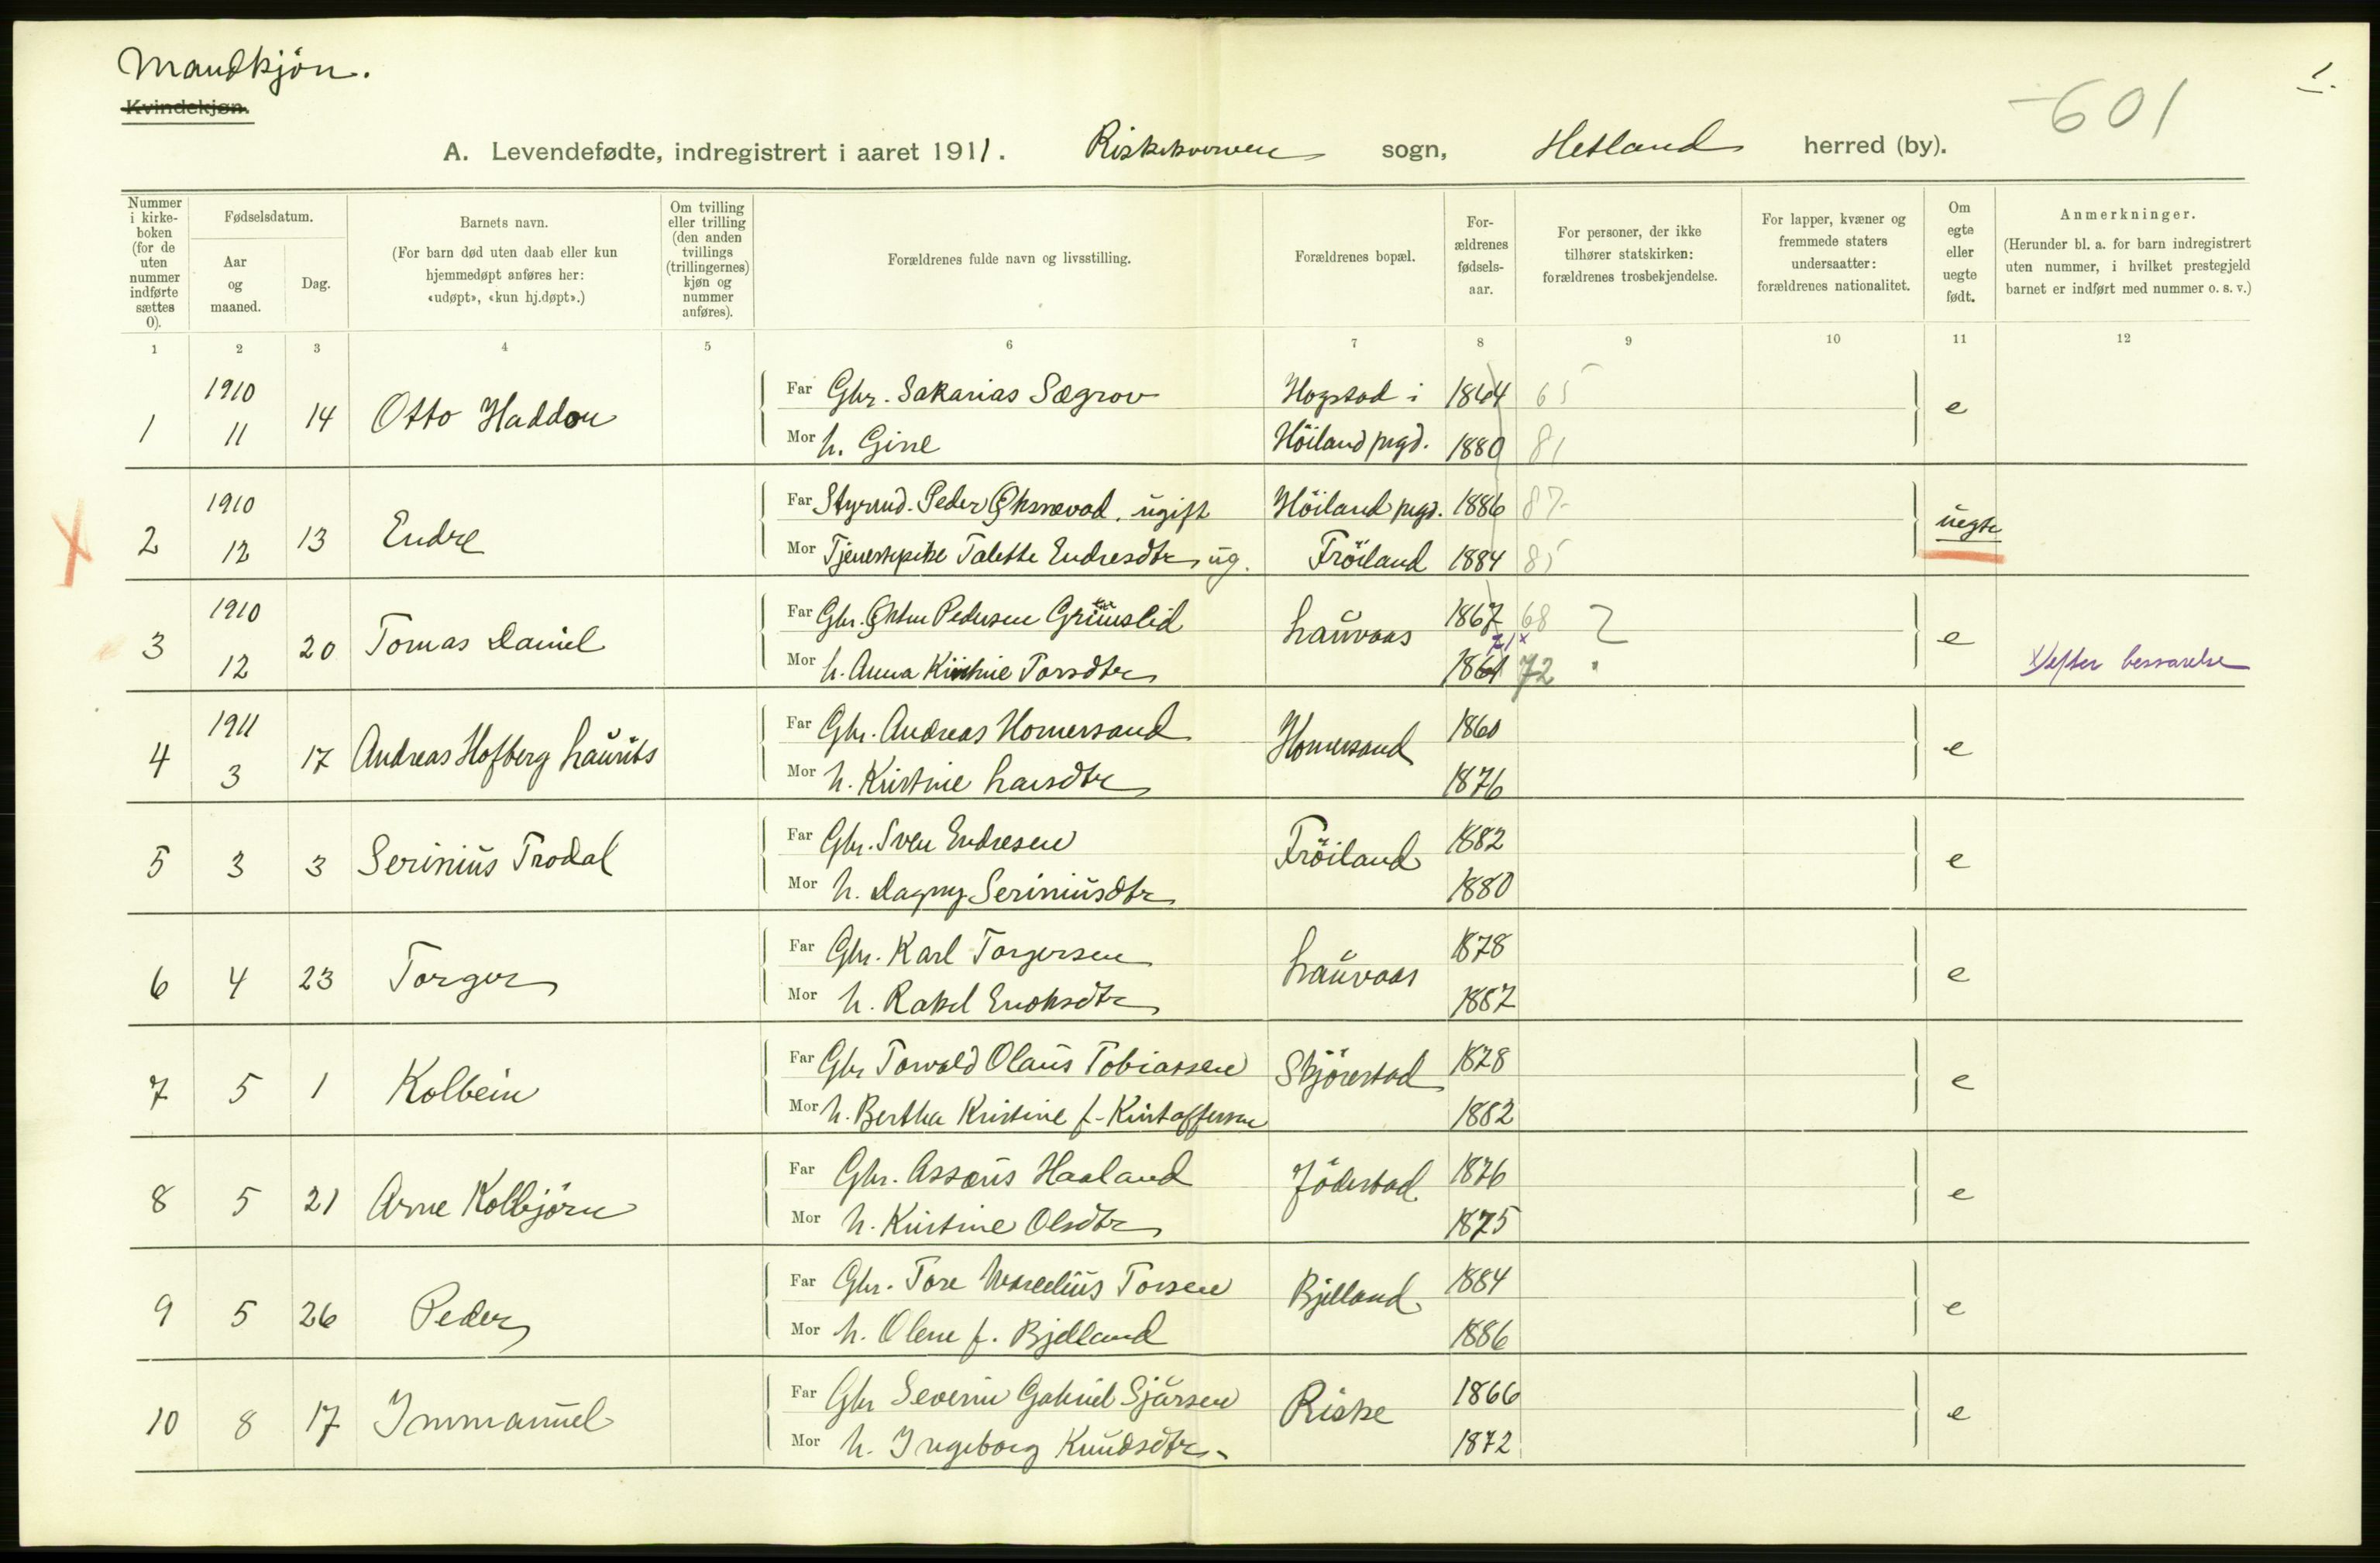 Mandkjön.
Kvindekjøn.
1.
601
A. Levendefødte, indregistrert i aaret 1911. Riskekverven sogn, Hetland herred (by).
Nummer i kirkeboken (for de uten nummer indførte sættes 0).
Fødselsdatum.
Aar og maaned.
Dag.
Barnets navn.
(For barn død uten daab eller kun hjemmedøpt anføres her: «udøpt», «kun hj.døpt».)
Om tvilling eller trilling (den anden tvillings (trillingernes) kjøn og nummer anføres).
Forældrenes fulde navn og livsstilling.
Forældrenes bopæl.
Forældrenes fødselsaar.
For personer, der ikke tilhører statskirken: forældrenes trosbekjendelse.
For lapper, kvæner og fremmede staters undersaatter: forældrenes nationalitet.
Om egte eller uegte født.
Anmerkninger.
(Herunder bl. a. for barn indregistrert uten nummer, i hvilket prestegjeld barnet er indført med nummer o. s. v.)
1 2 3 4 5 6 7 8 9 10 11 12
1 1910 11 14 Otto Haddon
Far Gbr. Sakarias Sægrov Hogstad i 1864 65 e
Mor h. Gine Höiland prgd. 1880 81
2 1910 12 13 Endre
Far Styrmd. Peder Øksnevad, ugift Höiland prgd. 1886 87 uegte
Mor Tjenestepike Talette Endresdtr ug. Fröiland 1884 85
3 1910 12 20 Tomas Daniel
Far Gbr. Pedersen Lauvaas 1867 68 e
Mor h. Anna Torsdtr 71 x 72 x) efter besvarelse
4 1911 3 17 Andreas Hofberg Laurits
Far Gbr. Andreas Homersand Homersand 1860 e
Mor h. Kristine Larsdtr 1876
5 3 3 Serinius Trodal
Far Gbr. Sven Endresen Fröiland 1882 e
Mor h. Dagny Seriniusdtr 1880
6 4 23 Torger
Far Gbr. Karl Torgersen Lauvaas 1878 e
Mor h. Rakel Enoksdtr 1887
7 5 1 Kolbein
Far Gbr Torvald Olaus Tobiassen Skjörestad 1878 e
Mor h. Bertha Kristine f. Kristoffersen 1882
8 5 21 Arne Kolbjörn
Far Gbr. Haaland Jödestad 1876 e
Mor h. Kristine Olsdtr 1875
9 5 26 Peder
Far Gbr. Tore Marelius Torsen Bjelland 1884 e
Mor h. Olene f. Bjelland 1886
10 8 17 Immanuel
Far Gbr Severin Gabriel Sjursen Riske 1866 e
Mor h. Ingeborg Knudsdtr 1872